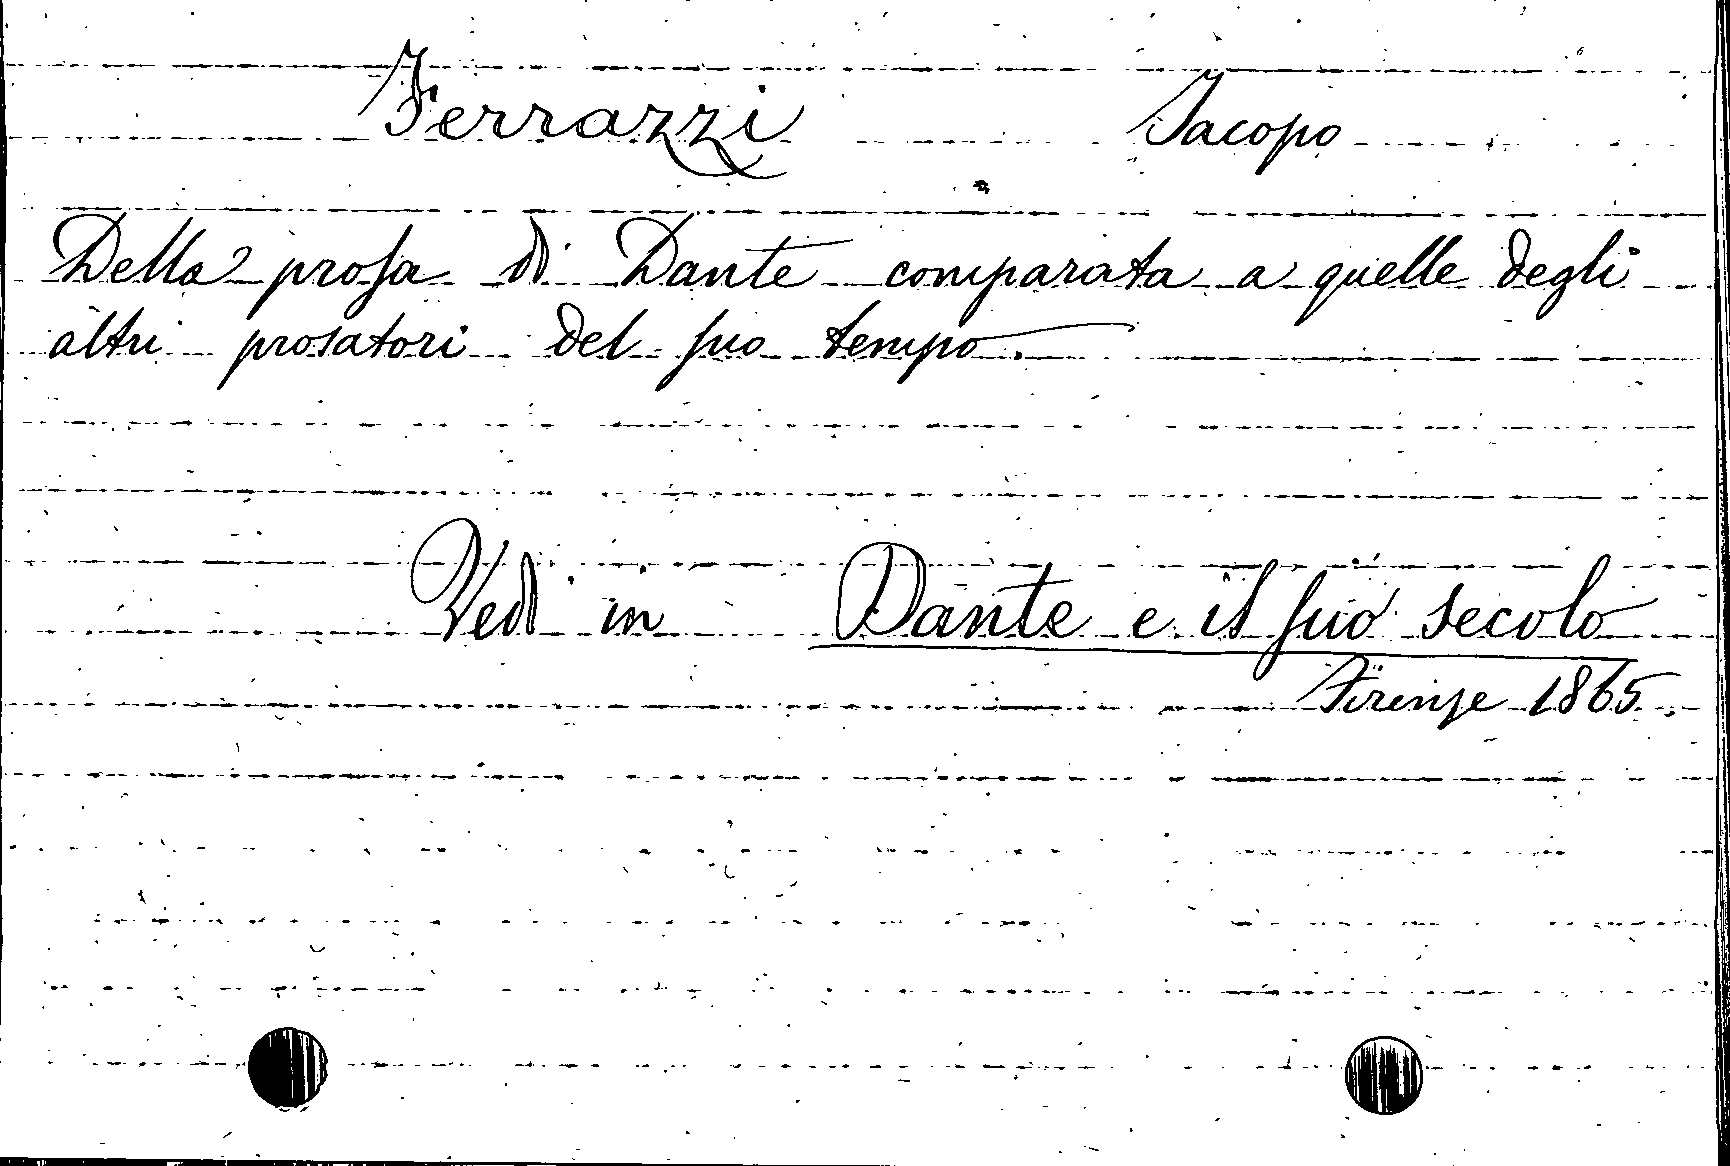 Ferrazzi Jacopo
Della prosa di Dante comparata a quelle degli
altri prosatori del suo tempo.
Vedi in Dante e il suo secolo
Firenze 1865.